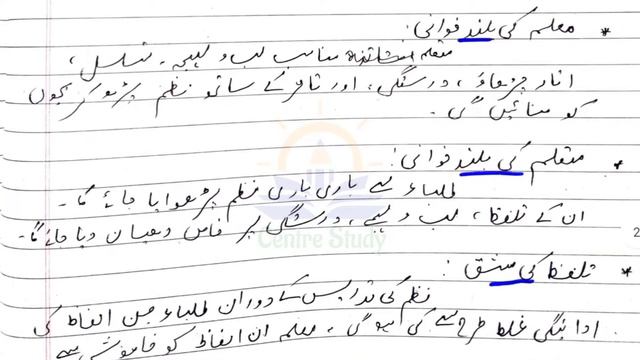 * معلمہ کی بلند خوانی:
معلمہ مناسب لب و لہجہ۔ تسلسل،
اتار چڑھاؤ، درستگی، اور تاثر کے ساتھ نظم پڑھ کر بچوں
کو سنائیں گی۔
* متعلم کی بلند خوانی:
طلباء سے باری باری نظم پڑھوایا جائے گا۔
ان کے تلفظ، لب و لہجے، درستگی پر خاص دھیان دیا جائے گا۔
2
Centre Study
* تلفظ کی مشق:
نظم کی تدریس کے دوران طلباء جن الفاظ کی
ادائیگی غلط طرح سے کی ہو گی۔ معلمہ ان الفاظ کو